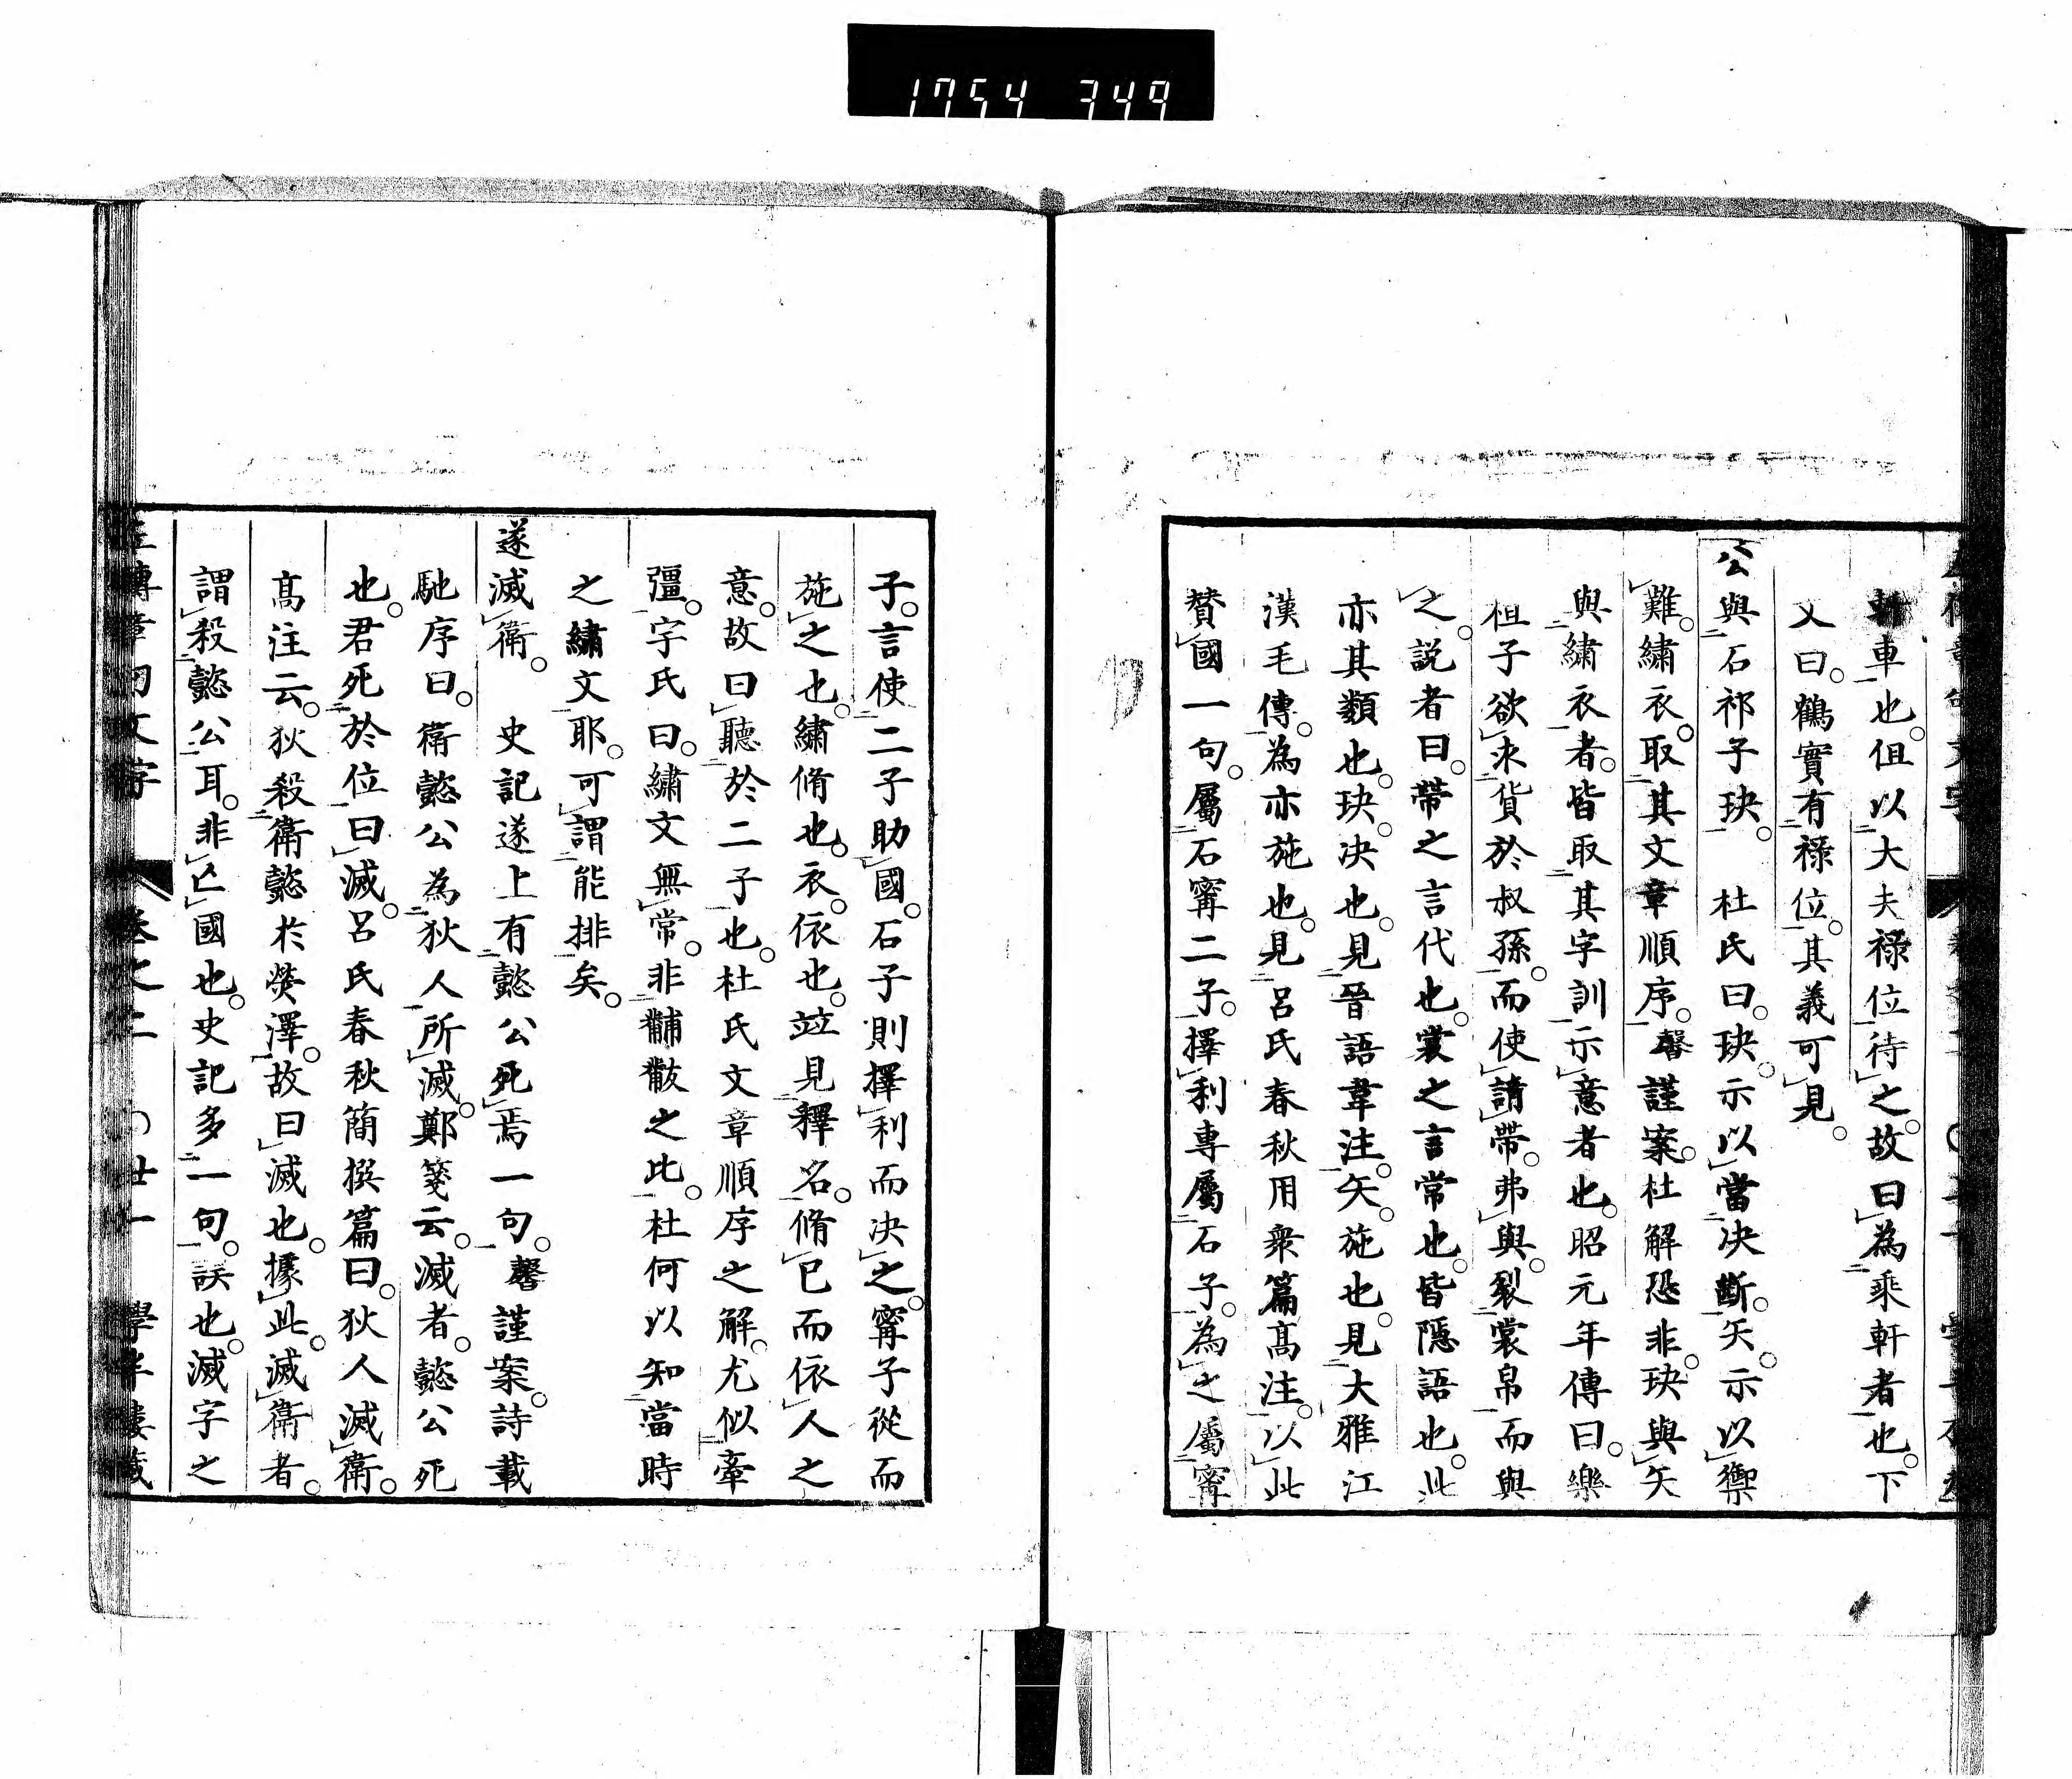 1754 349
軒車也。但以大夫祿位待之。故曰為乘軒者也。下
文曰。鶴實有祿位。其義可見。
公與石祁子玦。 杜氏曰。玦。示以當决斷。矢。示以禦
難。繡衣。取其文章順序。馨謹案。杜解恐非。玦與矢
與繡衣者。皆取其字訓示意者也。昭元年傳曰。樂
桓子欲求貨於叔孫。而使請帶。弗與。裂裳帛而與
之。説者曰。帶之言代也。裳之言常也。皆隱語也。此
亦其類也。玦。决也。見晉語韋注。矢。施也。見大雅江
漢毛傳。為亦施也。見呂氏春秋用衆篇高注。以此
贊國一句。屬石甯二子。擇利專屬石子。為之屬甯
子。言使二子助國。石子則擇利而决之。甯子從而
施之也。繡脩也。衣。依也。竝見釋名。脩已而依人之
意。故曰聽於二子也。杜氏文章順序之解。尤似牽
彊。字氏曰。繡文無常。非黼黻之比。杜何以知當時
之繡文耶。可謂能排矣。
遂滅衞。 史記遂上有懿公死焉一句。馨謹案。詩載
馳序曰。衞懿公為狄人所滅。鄭箋云。滅者。懿公死
也。君死於位曰滅。呂氏春秋簡撰篇曰。狄人滅衞。
高注云。狄殺衞懿於熒澤。故曰滅也。據此。滅衞者。
謂殺懿公耳。非亡國也。史記多一句。誤也。滅字之
左傳章句文字 卷之二 〇廿一 學半樓藏